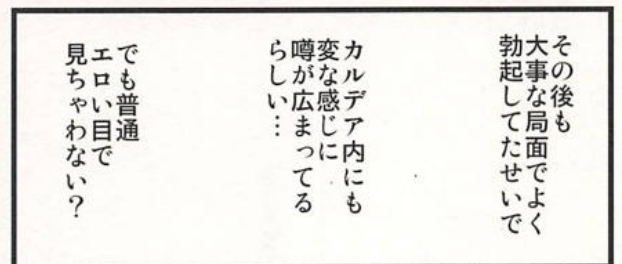 その後も
大事な局面でよく
勃起してたせいで
カルデア内にも
変な感じに
噂が広まってる
らしい…
でも普通
エロい目で
見ちゃわない？